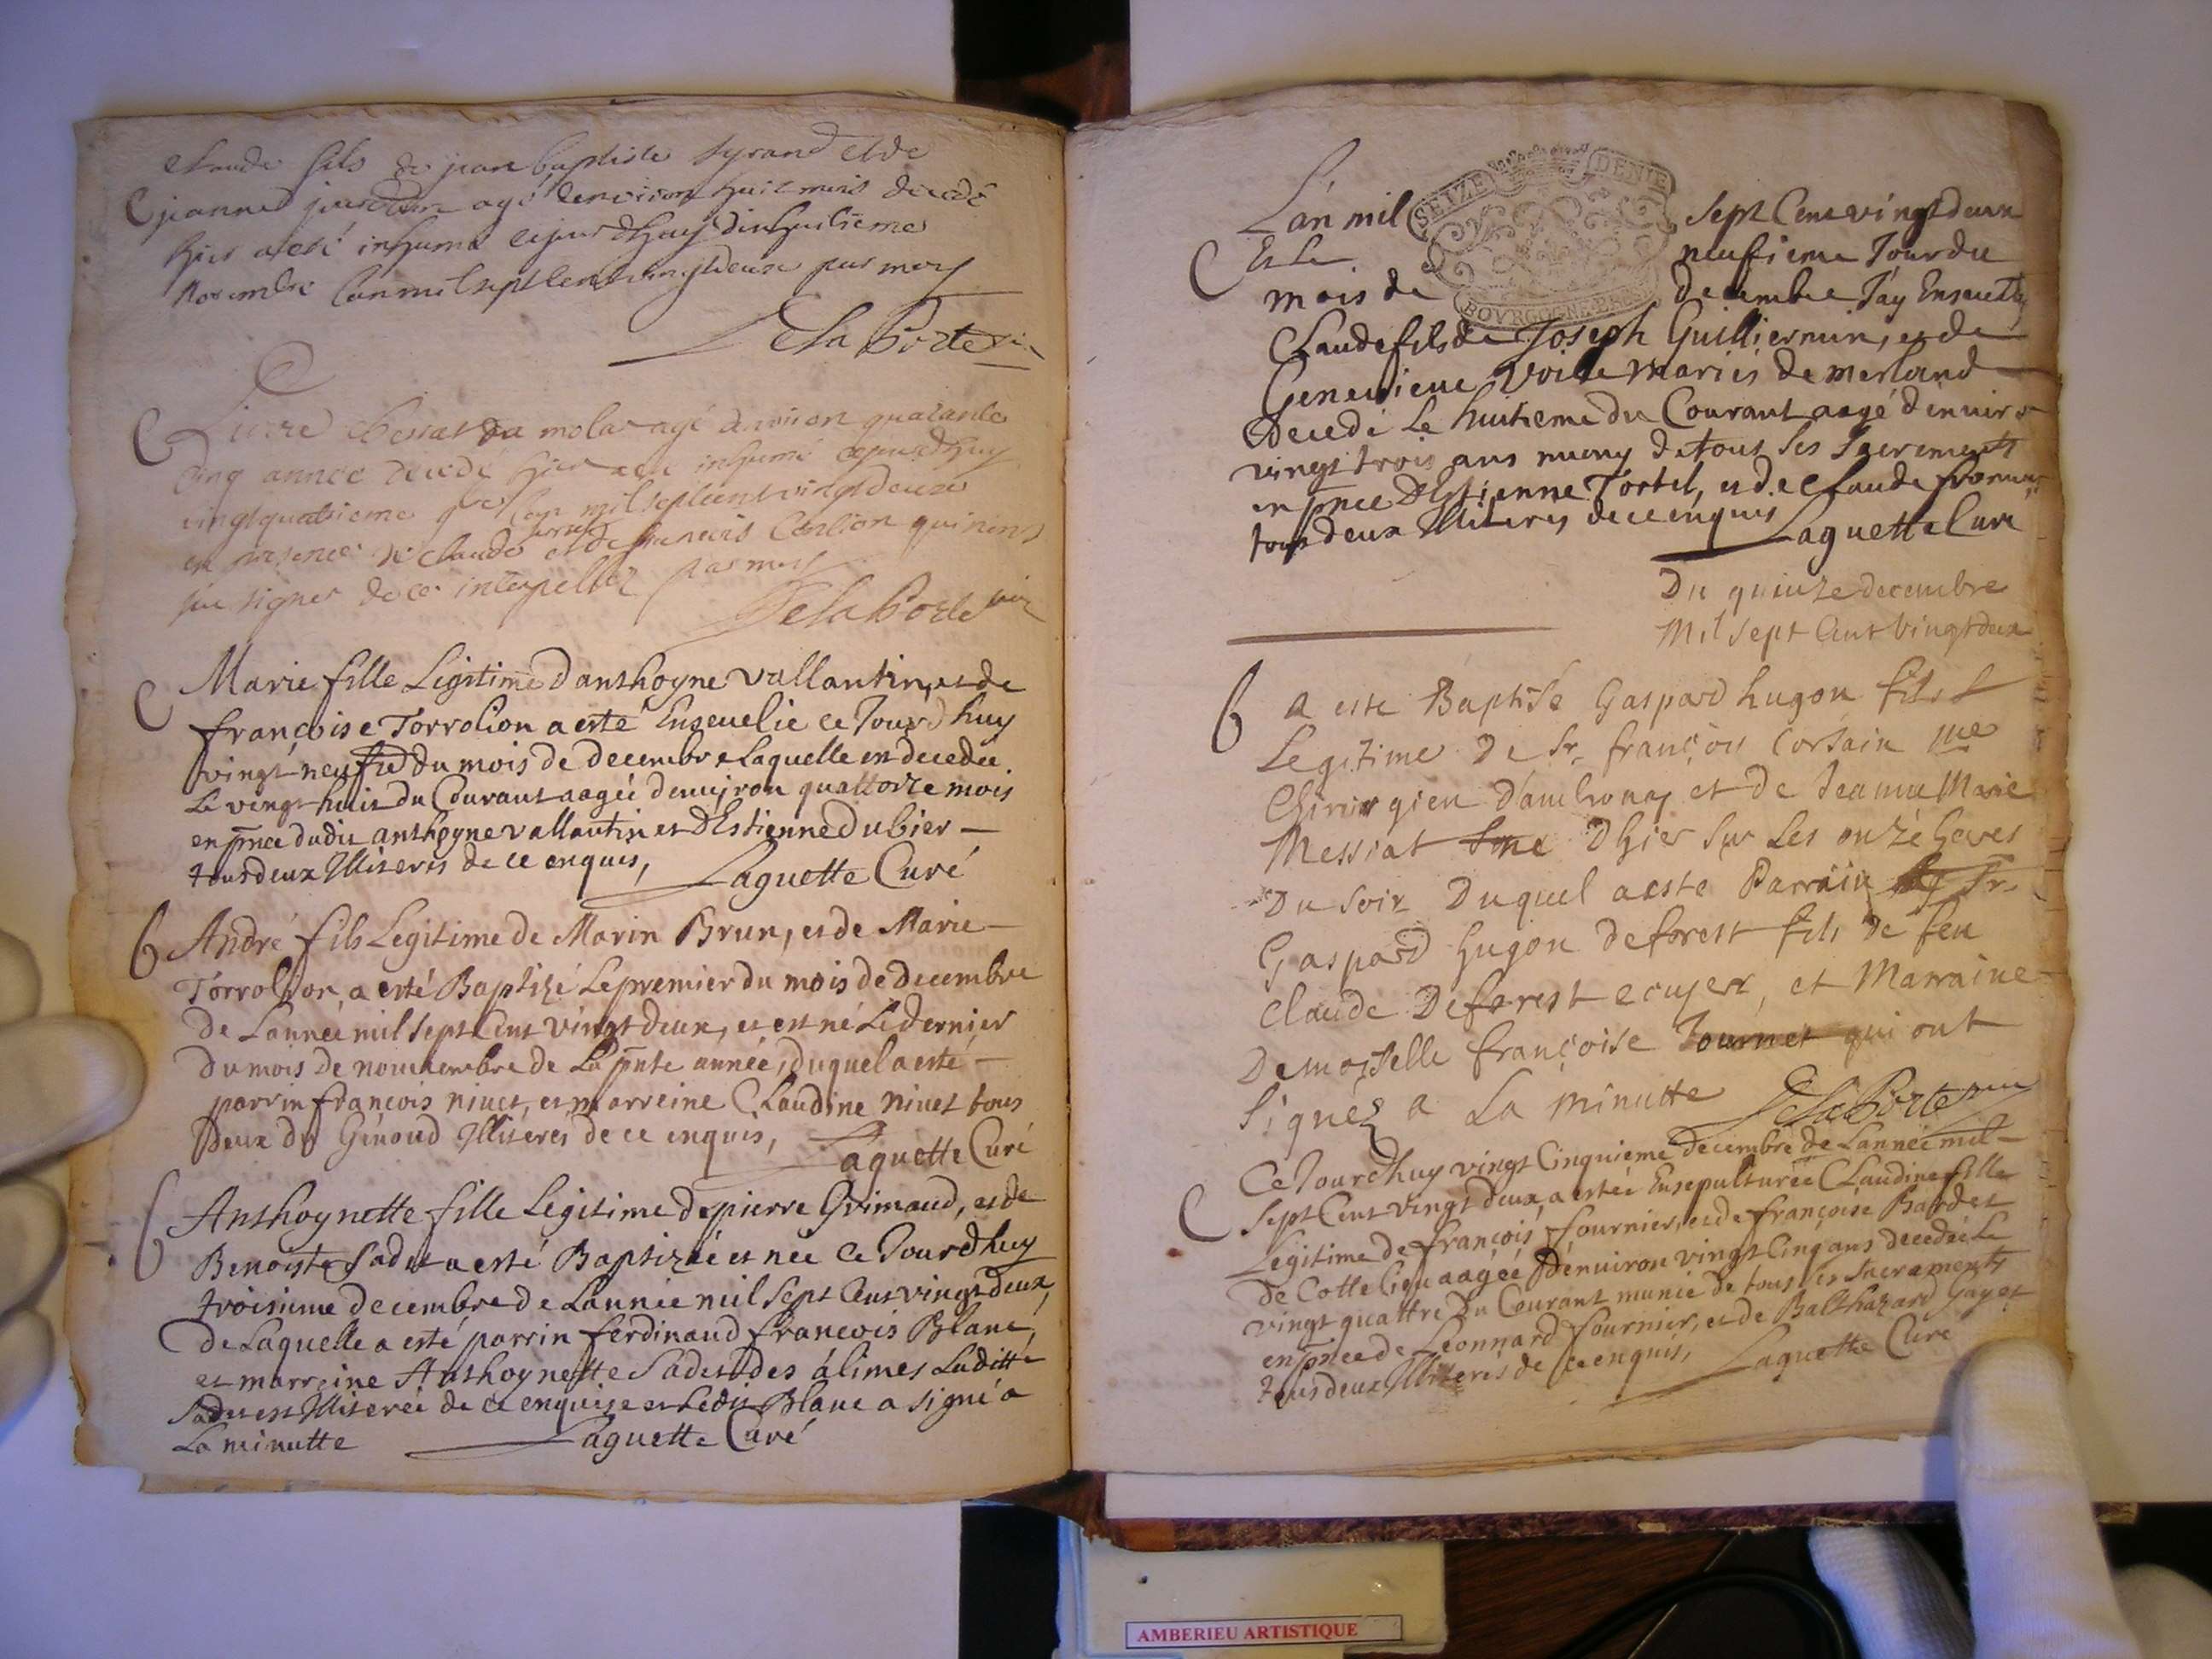 Claude fils de jean baptiste Tyrand et de
C jeanne agé denviron huit mois decedé
hier a esté inhumé cejourdhuy dixhuitieme
novembre lan mil sept cent vingtdeux par moy
DelaPorte
C Pierre du molar agé denvion quarante
Cinq année decedé hier a eté inhumé cejourdhuy
vingtquatrieme 9bre lan mil septcent vingtdeux
en presence de claude et de francois qui nont
sceu signer de ce interpellez par moy
DelaPorte
C Marie fille Legitime d'anthoyne vallantin, et de
françoise Torrolion a esté Enseuelie ce Jourd'huy
vingt neufie du mois de decembre Laquelle en decedée
Le vingt huit du Courant aagée denuiron quattorze mois
en pnce dudit anthoyne vallantin et d'Estienne Dubier
tous deux Illiteres de ce enquis, Laguette Curé
B André fils Legitime de Marin Brun, et de Marie
Torrolion, a esté Baptizé Le premier du mois de Decembre
de Lannée mil sept Cent vingt deux, et est né Le dernier
du mois de nouuembre de La pnte année, duquel a esté
parrin francois niuet, et marreine Claudine niuet tous
Deux du Genoud Illiteres de ce enquis, Laguette Curé
B Anthoynette fille Legitime de pierre Grimaud, et de
Benoiste Sadet a esté Baptizée et née Ce Jourd'huy
troisieme decembre de Lannée mil sept Cent vingt deux,
de Laquelle a esté parrin ferdinand francois Blanc,
et marreine Anthoynette Sadet des alimes Laditte
Sadet est Illiterée de ce enquise et Ledit Blanc a signé a
La minutte Laguette Curé
L'an mil sept Cent vingt deux
C Et Le neufieme Jour du
mois de decembre J'ay Enseuely
SEIZE DENIE
BOVRGOGNE BRES
Claude fils de Joseph Guilliermin, et de
Geneuieue mariés de merland
Decedé Le huitieme du Courant aagé denuiro
vingt trois ans muny de tous ses Sacrements
en pnce d'Estienne Tortel, et de Claude
tous deux Illiteres de ce enquis Laguette Curé
Du quinze decembre
Mil sept Cent Vingt deux
B a este Baptisé Gaspard hugon fils
Legitime de Sr. françois Corsain me
Chirurgien d'ambronay et de Jeanne Marie
Messiat né dhier sur Les onzé heures
Du soir Duquel a esté Parrain Sr.
Gaspard hugon deforest fils de feu
Claude Deforest ecuyer, et Marraine
Demoiselle françoise Tournet qui ont
signéz a La minutte DelaPorte
Ce Jourd'huy vingt Cinquieme decembre de Lannée mil
C Sept Cent vingt deux, a estée Ensepulturée Claudine fille
Legitime de françois fournier, et de françoise Bardet
de Cottelieu aagée denuiron vingt Cinq ans decedée Le
vingt quattre du Courant munie de tous ses Sacrements
en pnce de Leonnard fournier, et de Balthazard Gayet
tous deux Illiteres de ce enquis, Laguette Curé
AMBERIEU ARTISTIQUE